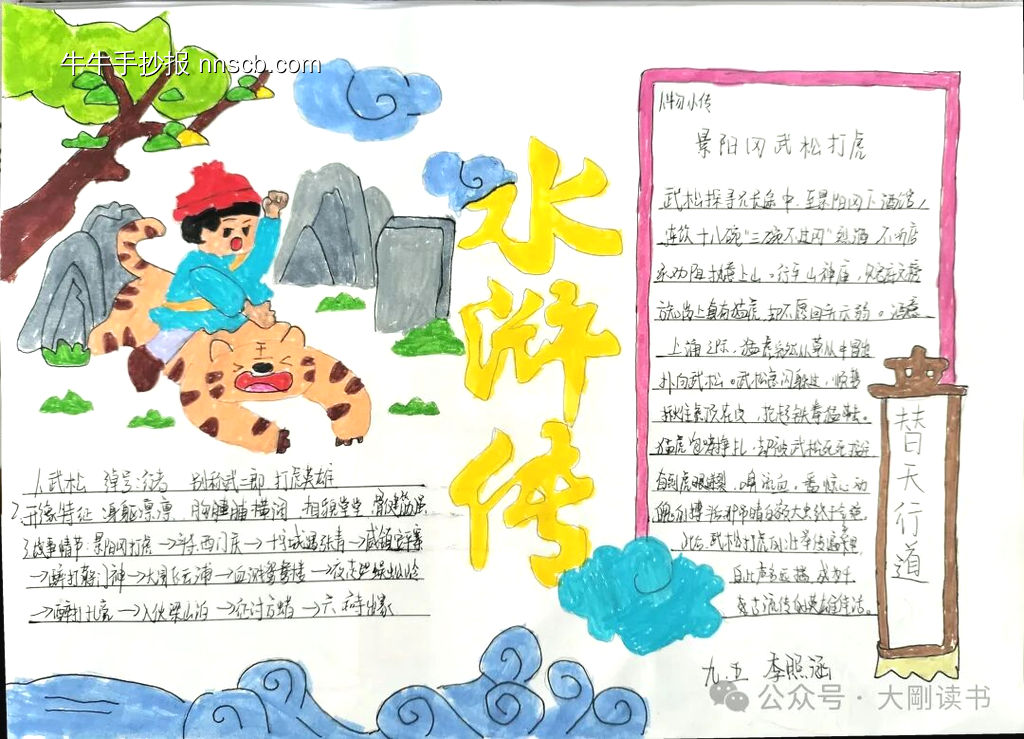 牛牛手抄报 nnscb.com
水浒传
1.武松 绰号:行者 别称武二郎 打虎英雄
2.形象特征 身躯凛凛 胸脯横阔 相貌堂堂 骨健筋强
3.故事情节 景阳冈打虎→斗杀西门庆→十字坡遇张青→威镇安平寨
→醉打蒋门神→大闹飞云浦→血溅鸳鸯楼→夜走蜈蚣岭
→醉打孔亮→入伙梁山泊→征讨方腊→六和寺出家
人物小传
景阳冈武松打虎
武松探寻兄长途中,至景阳冈下酒馆,
连饮十八碗"三碗不过冈"烈酒 不听店
家劝阻执意上山。行至山神庙,见官府文榜
方知岗上真有猛虎,却不愿回头示弱。酒意
上涌之际,猛虎突然从草丛中冒出
扑向武松。武松急闪躲过,顺势
揪住虎顶花皮,抡起铁拳猛击。
猛虎咆哮挣扎,却被武松死死按住
直到虎眼裂,鼻流血,
此后,武松打虎
自此声名远播,成为千
古流传的英雄佳话。
替天行道
九.五 李照涵
公众号·大刚读书